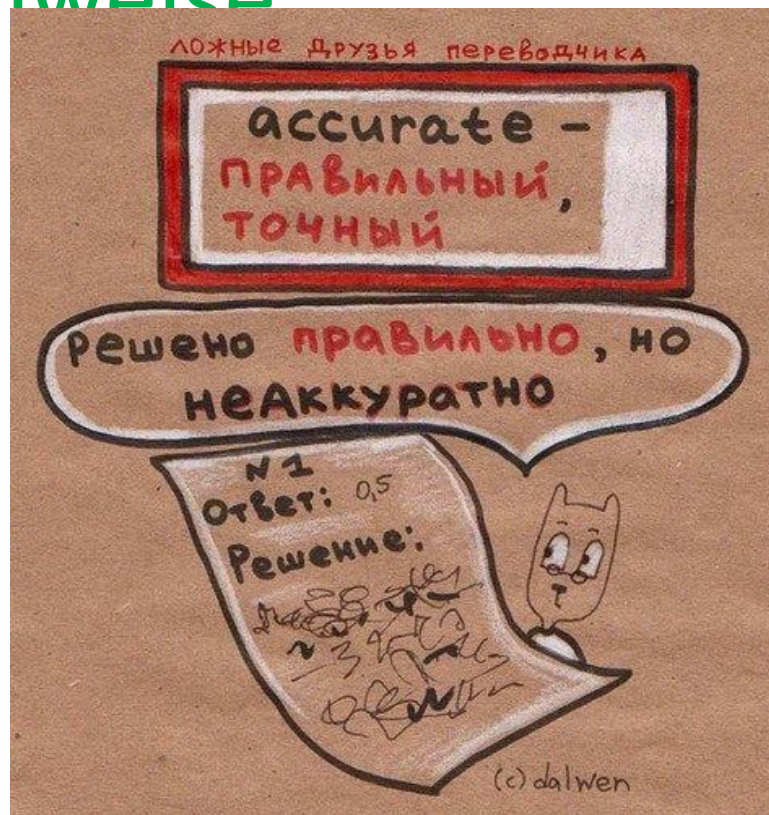 ложные друзья переводчика
accurate –
правильный,
точный
решено правильно, но
неаккуратно
N 1
Ответ: 0,5
Решение:
(c) dalwen